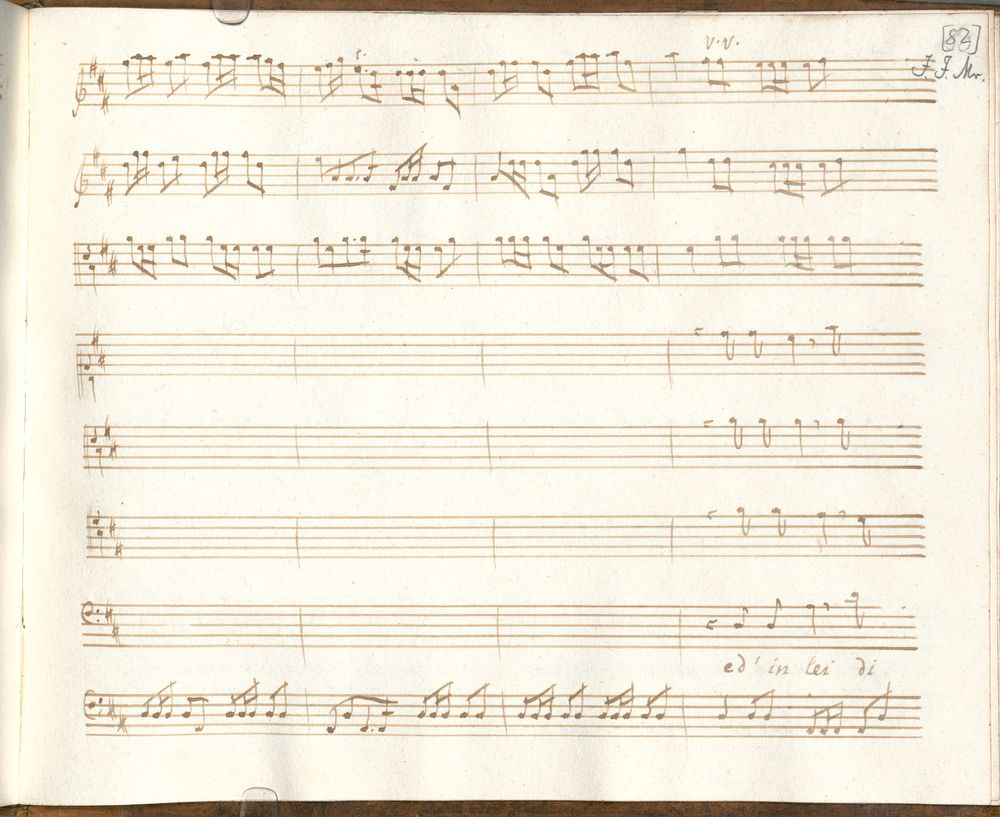 v. v.
[82]
J. J. Mr.
ed' in lei di